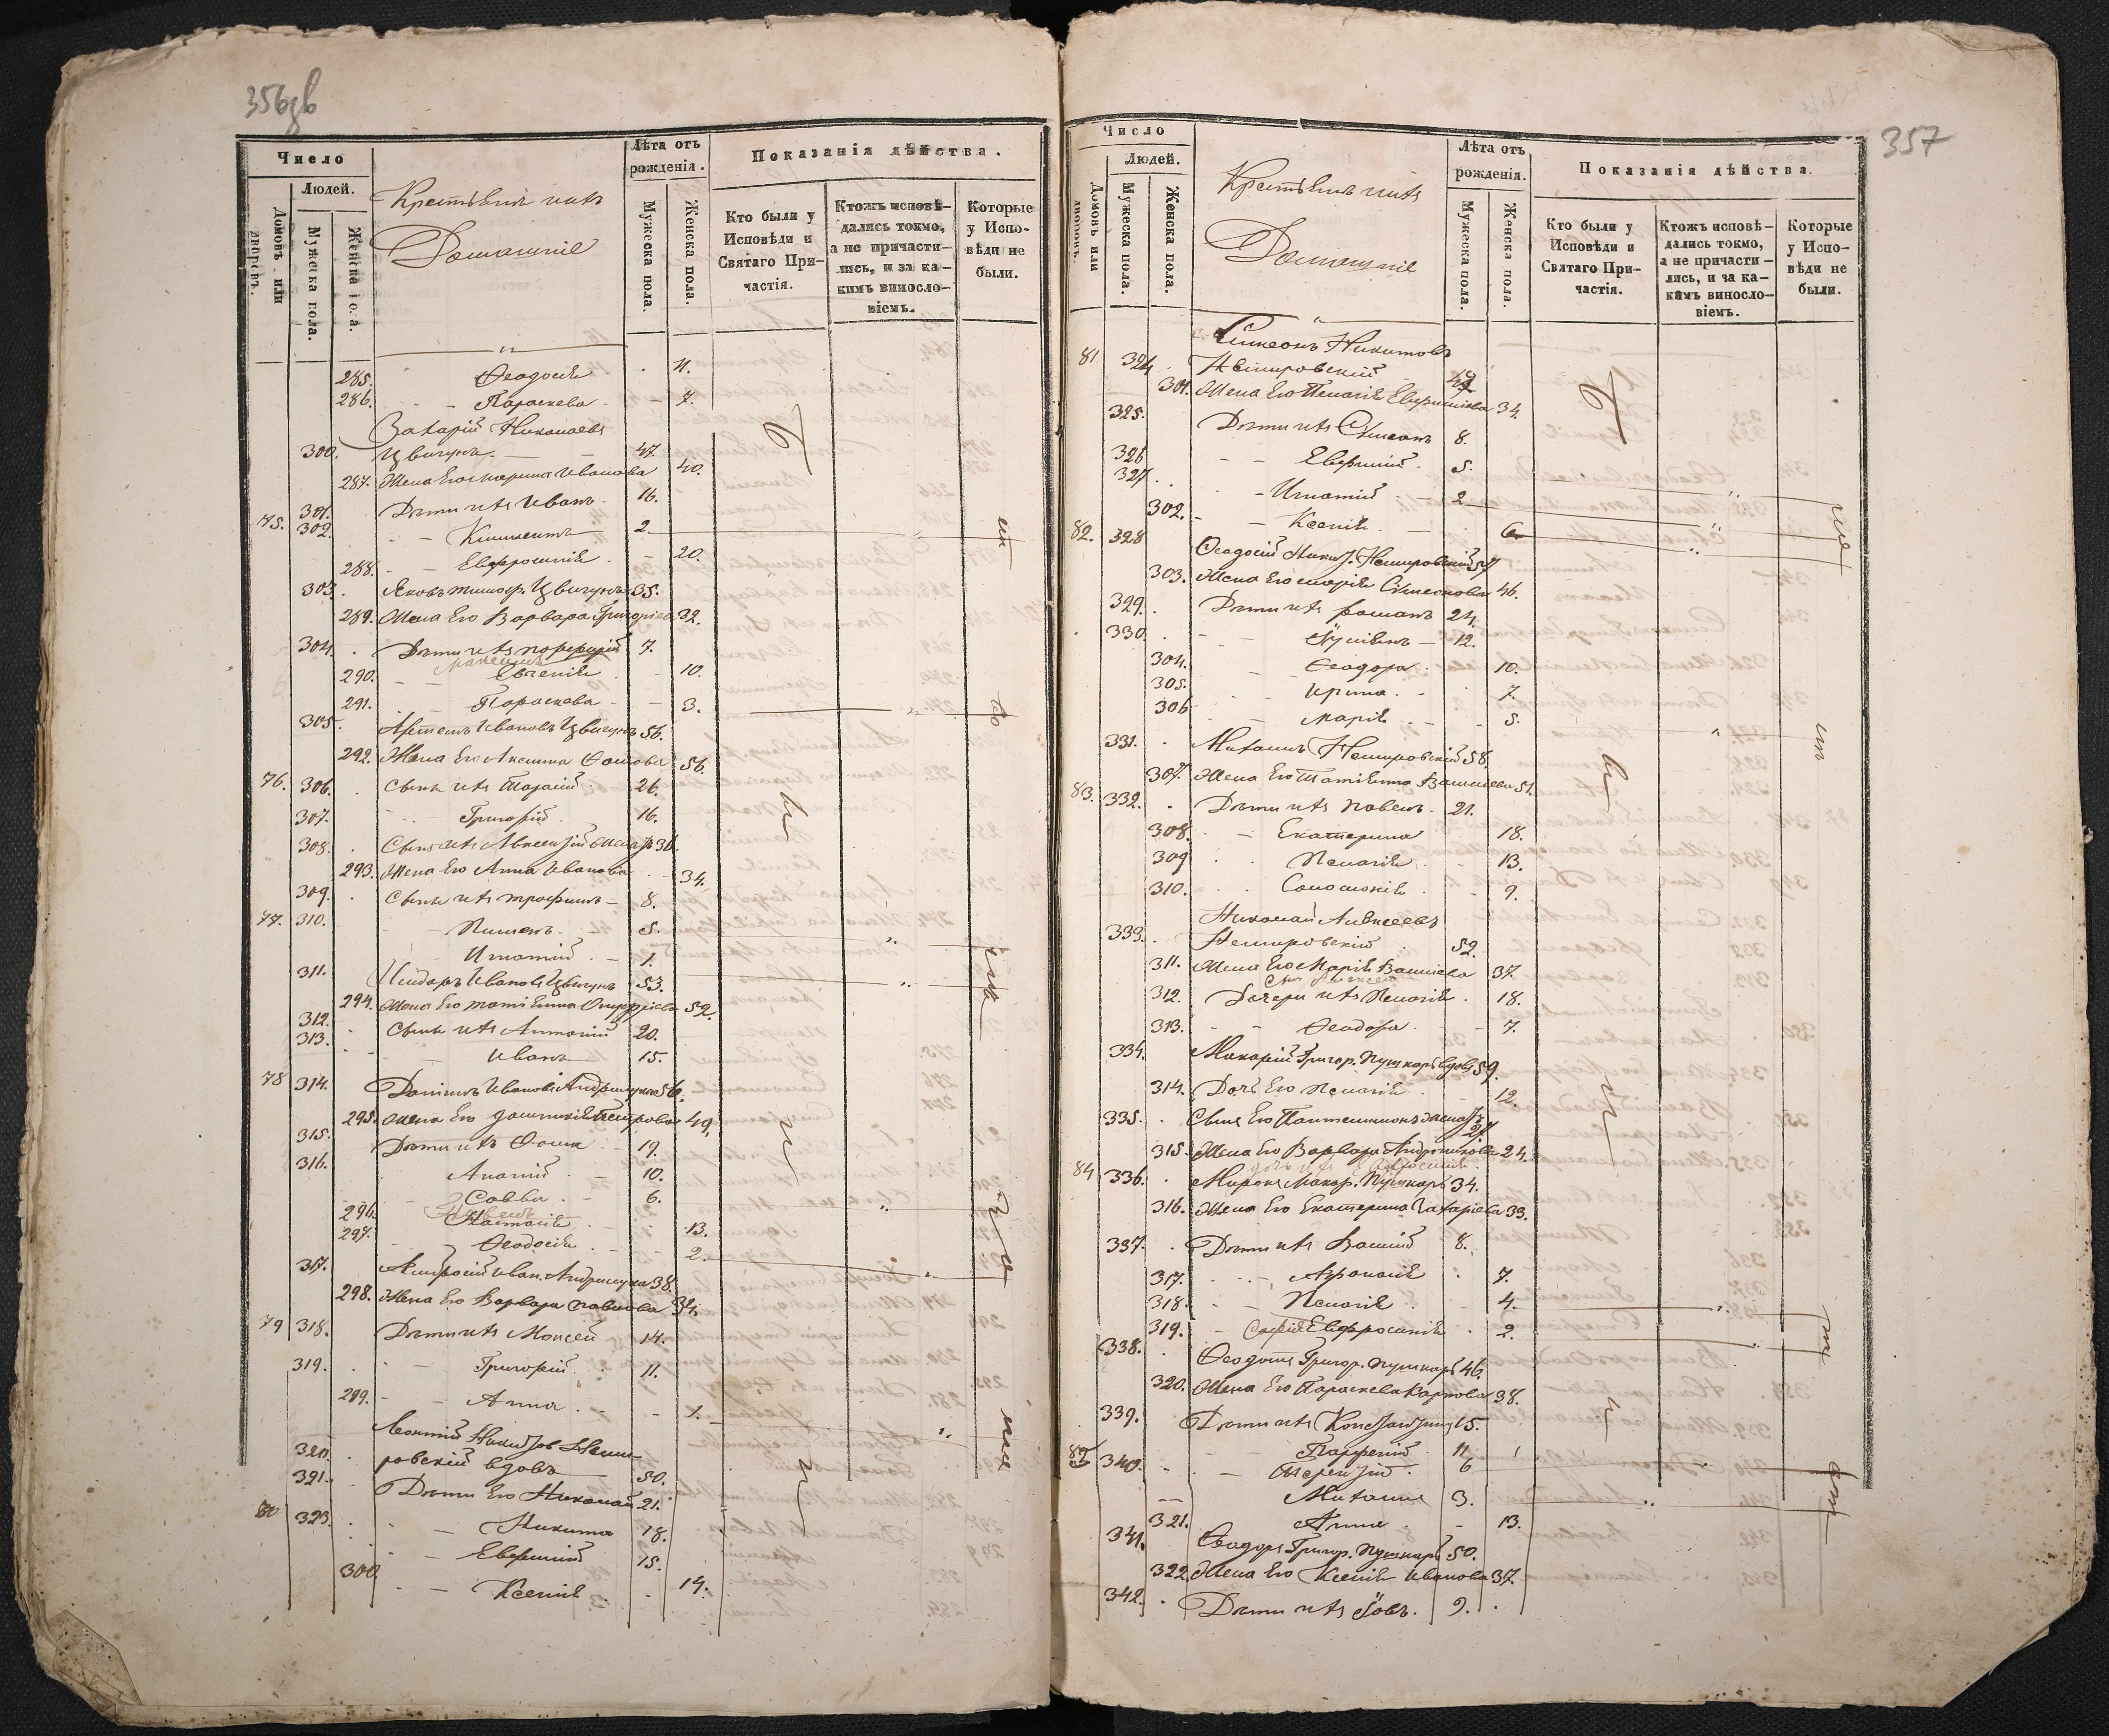 356зв
Число
Людей.
Домовъ или дворовъ.
Мужеска пола.
Женска пола.
Крестьяне и ихъ
Домашніе
Лѣта отъ рожденія.
Мужеска пола.
Женска пола.
Показанія дѣйства.
Кто были у Исповѣди и Святаго При-частія.
Ктожъ исповѣ-дались токмо, а не причасти-лись, и за ка-кимъ винословіемъ.
Которые у Испо-вѣди не были.
285. Ѳеодосія 11.
286. Параскева 7.
Захарій Николаевъ
300. Цвигунъ 47.
287. Жена Его Марина Иванова 40.
301. Дѣти ихъ Иванъ 16.
75. 302. Климентъ 2
288. Евфросинія 20.
303. Яковъ Тимоф. Цвигунъ 35.
289. Жена Его Варвара Григоріева 32.
304. Дѣти ихъ Порфирій 7.
290. Евгенія 10.
291. Параскева 3.
305. Артемъ Ивановъ Цвигунъ 56.
292. Жена Его Акилина Ѳомова 56.
76. 306. Сынъ ихъ Тарасій 26.
307. Григорій 16.
308. Сынъ ихъ Авксентій женатъ 36.
293. Жена Его Анна Иванова 34.
309. Сынъ ихъ Трофимъ 8.
77. 310. Пименъ 5.
Игнатій 1.
311. Исидоръ Ивановъ Цвигунъ 53.
294. Жена Его Татіанна Онуфріева 52.
312. Сынъ ихъ Антоній 20.
313. Иванъ 15.
78 314. Даніилъ Ивановъ Андрищукъ 56.
295. Жена Его Домникія Петрова 49.
315. Дѣти ихъ Ѳома 19.
316. Ананій 10.
Савва 6.
296. Настасія 13.
297. Ѳеодосія 2.
317. Амвросій Иван. Андрищукъ 38.
298. Жена Его Варвара Павлова 34.
79 318. Дѣти ихъ Моисей 14.
319. Григорій 11.
299. Анна 1.
Леонтій Никитовъ Неми-
320. ровскій вдовъ 50.
321. Дѣти Его Николай 21.
80 323. Никита 18.
Евфимій 15.
300 Ксенія 14.
357
Число
Людей.
Домовъ или дворовъ.
Мужеска пола.
Женска пола.
Крестьяне и ихъ
Домашніе
Лѣта отъ рожденія.
Мужеска пола.
Женска пола.
Показанія дѣйства.
Кто были у Исповѣди и Святаго При-частія.
Ктожъ исповѣ-дались токмо, а не причасти-лись, и за ка-кимъ винословіемъ.
Которые у Испо-вѣди не были.
Симеонъ Никитовъ
81 324 Немировскій
301. Жена Его Пелагія Евфиміева 34.
325. Дѣти ихъ Симеонъ 8.
326 Евфимій 5.
327 Игнатій 2
302. Ксенія 6
82. 328 Ѳеодосій Никит. Немировскій 57
303. Жена Его Марія Симеонова 46.
329. Дѣти ихъ Романъ 24.
330. Іуліянъ 12.
304. Ѳеодора 10.
305. Ирина 7.
306 Марія 5.
331. Михаилъ Немировскій 58.
307. Жена Его Татіянна Василіева 51.
83. 332. Дѣти ихъ Павелъ 21.
308. Екатерина 18.
309 Пелагія 13.
310. Соломонія 9.
Николай Алексеевъ
333. Немировскій 52.
311. Жена Его Марія Василіева 37.
312. Дочери ихъ Пелагія 18.
313. Ѳеодора 7.
334. Макарій Григор. Пушкарь вдовъ 59.
314. Дочь Его Пелагія 12.
335. Сынъ Его Пантелимонъ женатъ 27
315. Жена Его Варвара Андроникова 24.
84 336. Миронъ Макар. Пушкарь 34.
316. Жена Его Екатерина Захаріева 33.
337. Дѣти ихъ Василій 8.
317. Аѳанасія 7.
318. Пелагія 4.
319. Софія Евфросинія 2.
338. Ѳеодотъ Григор. Пушкарь 46.
320. Жена Его Параскева Карпова 38.
339. Дѣти ихъ Константинъ 15.
340. Парфеній 11
Терентій 6
Михаилъ 3.
321. Анна 13.
341. Ѳеодоръ Григор. Пушкарь 50.
322 Жена Его Ксенія Иванова 37.
342. Дѣти ихъ Іовъ. 9.